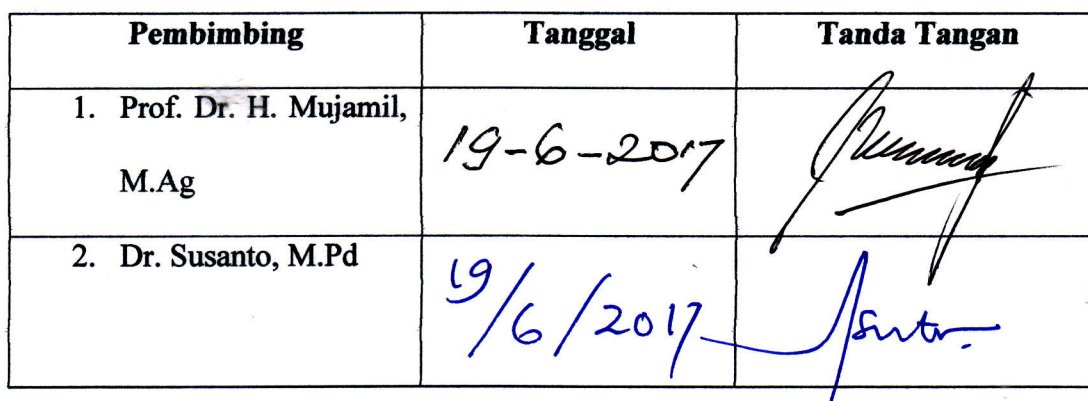 Pembimbing Tanggal Tanda Tangan
1. Prof. Dr. H. Mujamil, 19-6-2017
M.Ag
2. Dr. Susanto, M.Pd 19/6/2017